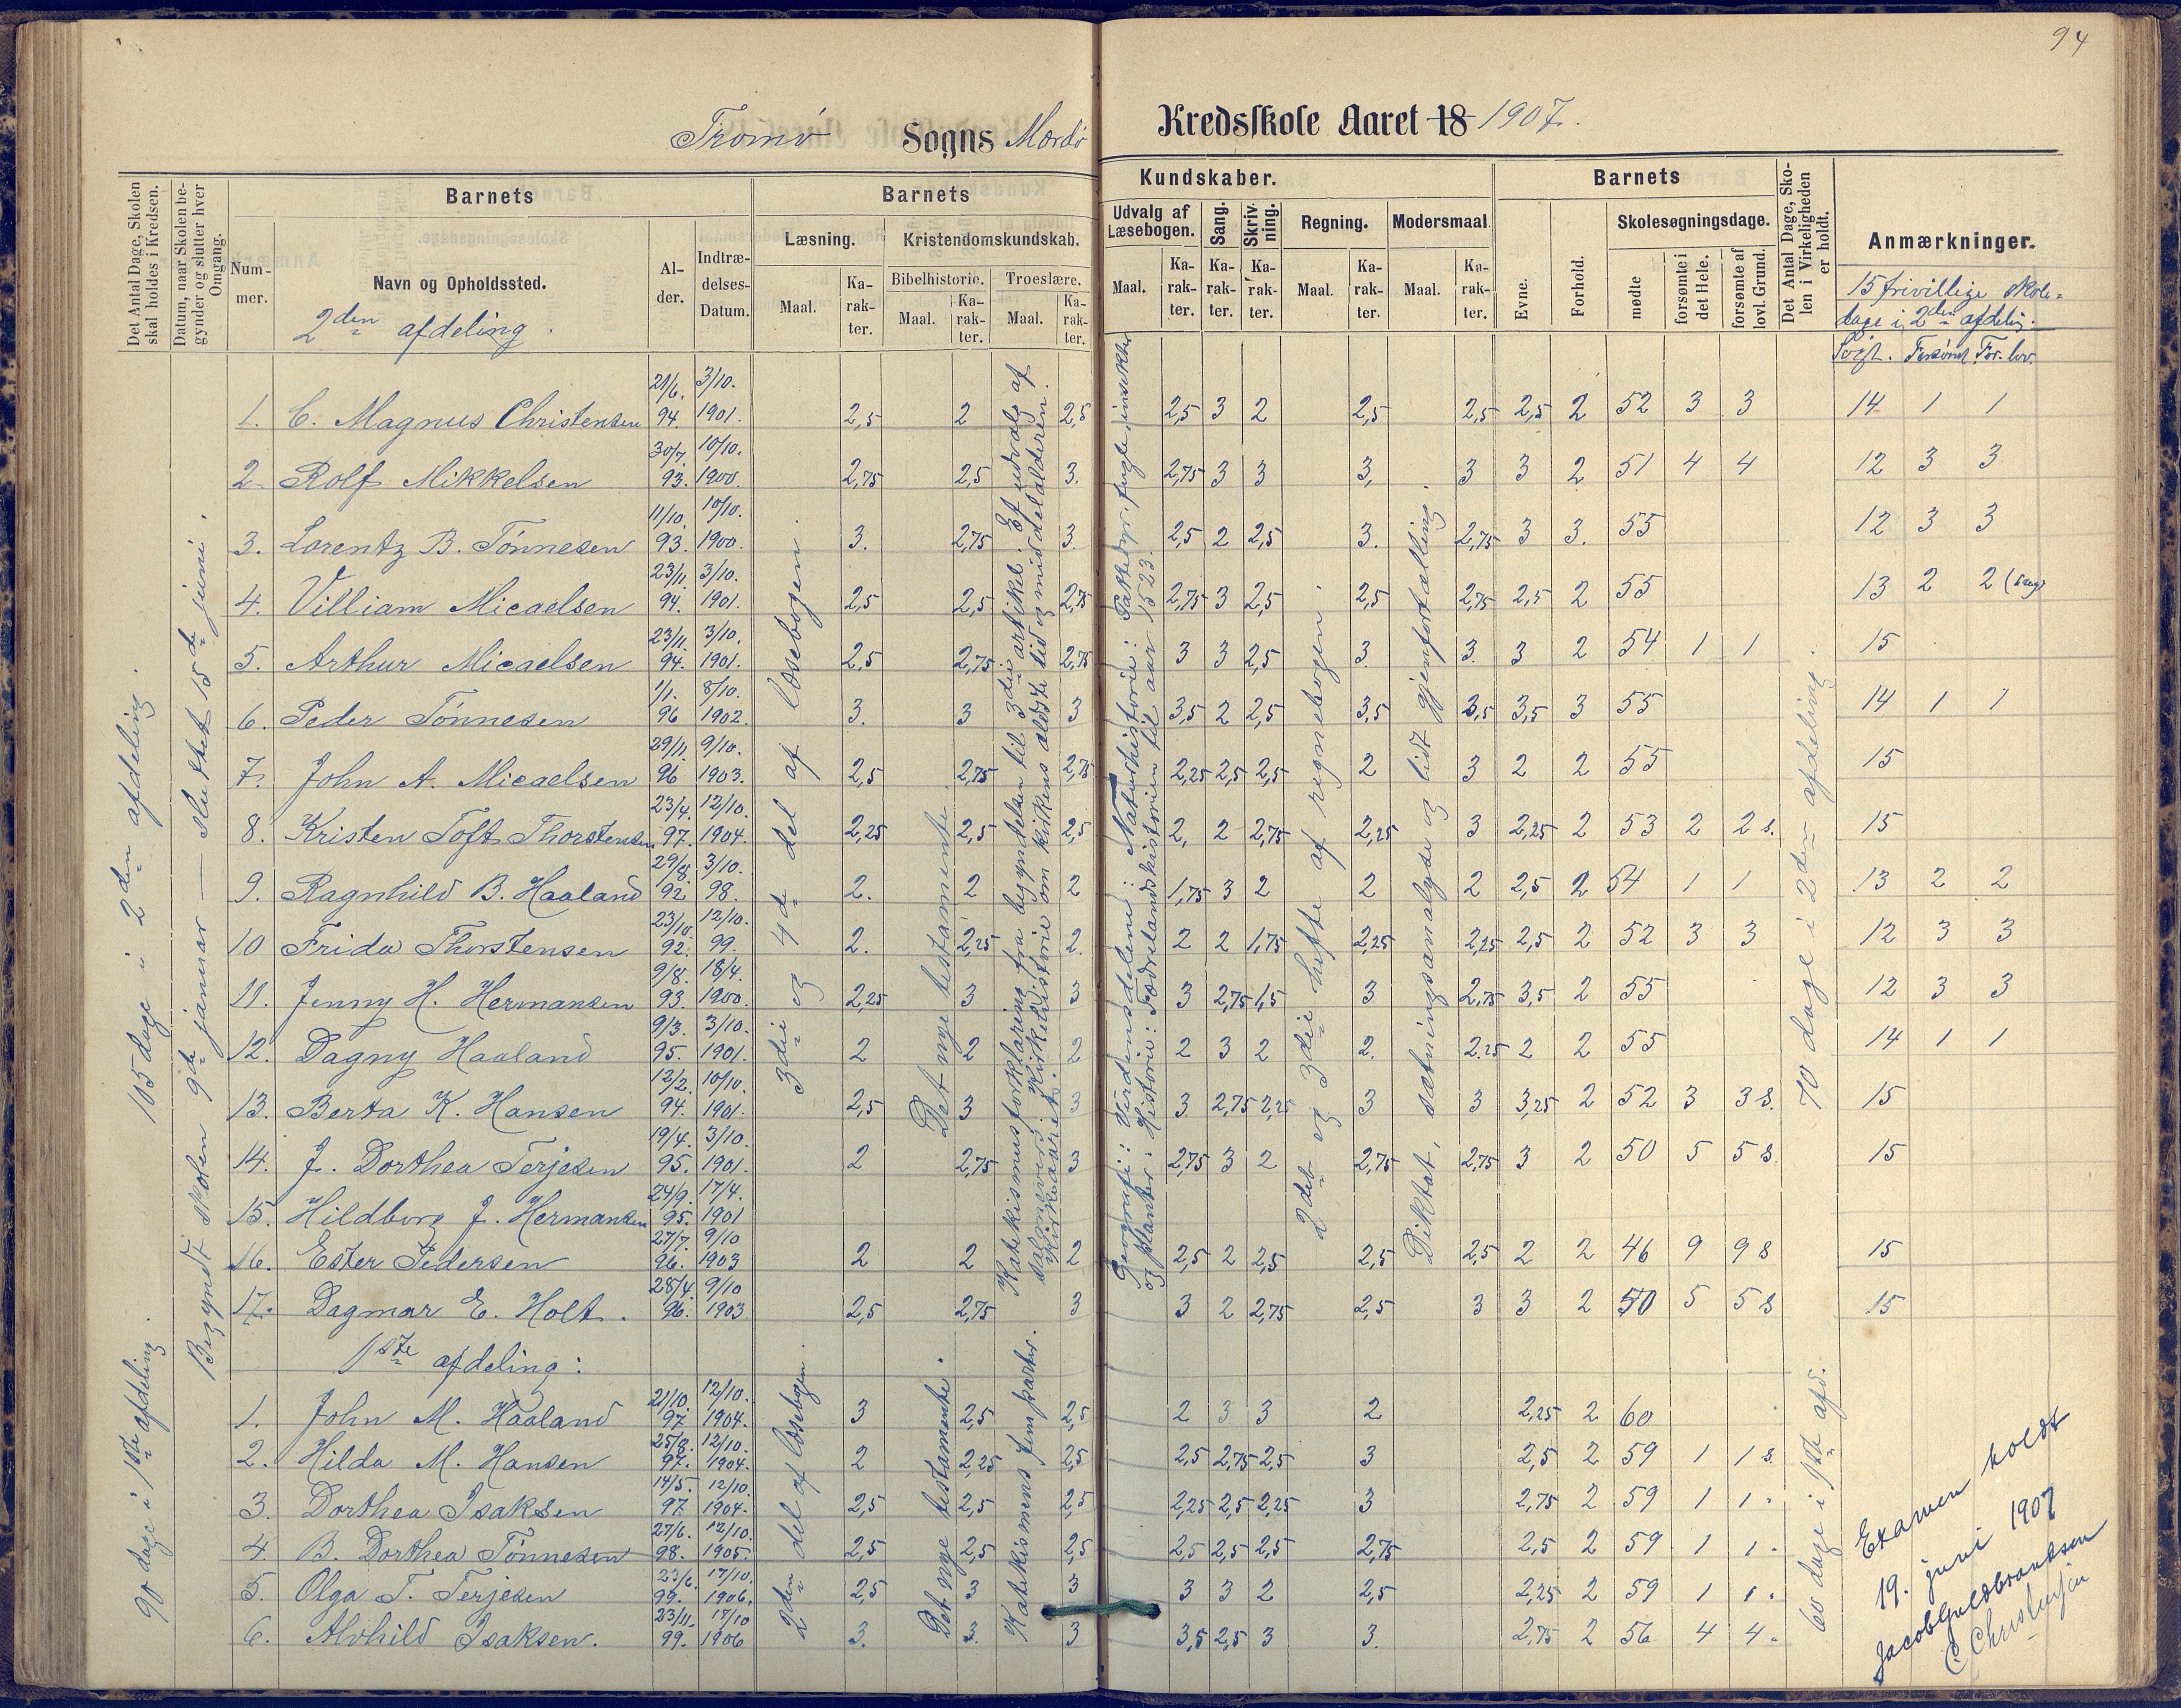 94
Tromø Sogns Mærdø Kredsskole Aaret 18 1907.
Det Antal Dage, Skolen skal holdes i Kredsen.
Datum, naar Skolen begynder og slutter hver Omgang.
Nummer.
Barnets
Navn og Opholdssted.
Alder.
Indtrædelses-Datum.
Barnets Kundskaber.
Læsning. Maal. Karakter.
Kristendomskundskab.
Bibelhistorie. Maal. Karakter.
Troeslære. Maal. Karakter.
Udvalg af Læsebogen. Maal. Karakter.
Sang. Karakter.
Skrivning. Karakter.
Regning. Maal. Karakter.
Modersmaal. Maal. Karakter.
Barnets
Evne.
Forhold.
Skolesøgningsdage.
mødte
forsømte i det Hele.
forsømte af lovl. Grund.
Det Antal Dage, Skolen i Virkeligheden er holdt.
Anmærkninger.
15 frivillige skoledage i 2den afdelig.
Søgt. Forsømt For. lov.
105 dage i 2den afdeling.
90 dage i 1ste afdeling.
Begyndt skolen 9de januar — sluttet 15de juni.
3die og 4de del af læsebogen.
Det nye testamente.
Katekismusforklaring fra begyndelsen til 3die artikel. Et udvalg af
salmevers. Kirkehistorie om kirkens ældste tid og middelalderen.
Kirkeaaret.
Geografi: Verdensdelene: Naturhistorie: Pattedyr, fugle, insekter
og planter. Historie: Fædrelandshistorien til aar 1523.
2det og 3die hefte af regnebogen.
Diktat, sætningsanalyse og lidt gjenfortælling.
70 dage i 2den afdeling.
2den afdeling.
1. C. Magnus Christensen 21/6. 94. 3/10. 1901. 2,5 2 2,5 2,5 3 2 2,5 2,5 2,5 2 52 3 3 14 1 1
2. Rolf Mikkelsen 30/7. 93. 10/10. 1900. 2,75 2,5 3. 2,75 3 3 3, 3 3 2 51 4 4 12 3 3
3. Lorentz B. Tönnesen 11/10. 93. 10/10. 1900. 3. 2,75 3. 2,5 2 2,5 3. 2,75 3 3. 55 12 3 3
4. Villiam Micaelsen 23/11 94. 3/10. 1901. 2,5 2,5 2,75 2,75 3 2,5 2,5 2,75 2,5 2 55 13 2 2
5. Arthur Micaelsen 23/11. 94. 3/10. 1901. 2,5 2,75 2,75 3 3 2,5 3 3. 3 2 54 1 1 15
6. Peder Tönnesen 1/1. 96 8/10. 1902. 3. 3 3 3,5 2 2,5 3,5 3,5 3,5 3 55 14 1 1
7. John A. Micaelsen 29/11. 96 9/10. 1903. 2,5 2,75 2,75 2,25 2,5 2,5 2 3 2 2 55 15
8. Kristen Toft Thorstensen 23/4. 97. 12/10. 1904. 2,25 2,5 2,5 2, 2 2,75 2,25 3 2,25 2 53 2 2 s. 15
9. Ragnhild B. Haaland 29/8. 92 3/10. 98. 2. 2 2 1,75 3 2 2 2 2,5 2 54 1 1 13 2 2
10 Frida Thorstensen 23/10. 92. 12/10. 99. 2. 2,25 2. 2 2 1,75 2,25 2,25 2,5 2 52 3 3 12 3 3
11. Jenny H. Hermansen 9/8. 93. 18/4. 1900. 2,25 3 3 3 2,75 1,5 3 2,75 3,5 2 55 12 3 3
12. Dagny Haaland 9/3. 95. 3/10. 1901. 2 2 2 2 3 2 2. 2.25 2 2 55 14 1 1
13. Berta K. Hansen 12/2. 94. 10/10. 1901. 2,5 3 3 3 2,75 2,25 3 3 3,25 2 52 3 3 s. 15
14. J. Dorthea Terjesen 19/4. 95. 3/10. 1901. 2 2,75 3 2,75 3 2 2,75 2,75 3 2 50 5 5 s. 15
15. Hildborg J. Hermansen 24/9. 95. 17/4. 1901
16. Ester Pedersen 27/7. 96. 9/10 1903 2 2 2 2,5 2 2,5 2,5 2,5 2 2 46 9 9 s 15
17. Dagmar E. Holt. 28/4. 96. 9/10 1903 2,5 2,75 3 3 2 2,75 2,5 3 3 2 50 5 5 s 15
1ste afdeling:
2den del af læsebogen.
Det nye testamente.
Katekismens fem parter.
60 dage i 1ste afd.
1. John M. Haaland 21/10. 97. 12/10. 1904. 3 2,5 2,5 2 3 3 2 2,25 2 60
2. Hilda M. Hansen 25/8. 97. 12/10. 1904. 2 2,25 2,5 2,5 2,75 2,5 3 2,5 2 59 1 1 s.
3. Dorthea Isaksen 14/5. 97 12/10. 1904. 2,5 2,5 2,5 2,25 2,5 2,25 3 2,75 2 59 1 1 "
4. B. Dorthea Tönnesen 27/6. 98. 12/10. 1905. 2,5 2,5 2,5 2,5 2,5 2,5 2,75 2,5 2 59 1 1 "
5. Olga T. Terjesen 23/6. 99. 17/10. 1906. 2,5 3 3 3 3 2 2,5 2,25 2 59 1 1 "
6. Alvhild Isaksen. 23/11. 99. 17/10 1906 3. 3. 3 3,5 2,5 3 3. 2,75 2 56 4 4 "
Examen holdt
19. juni 1907
Jacob Guldbrandsen
C. Christensen